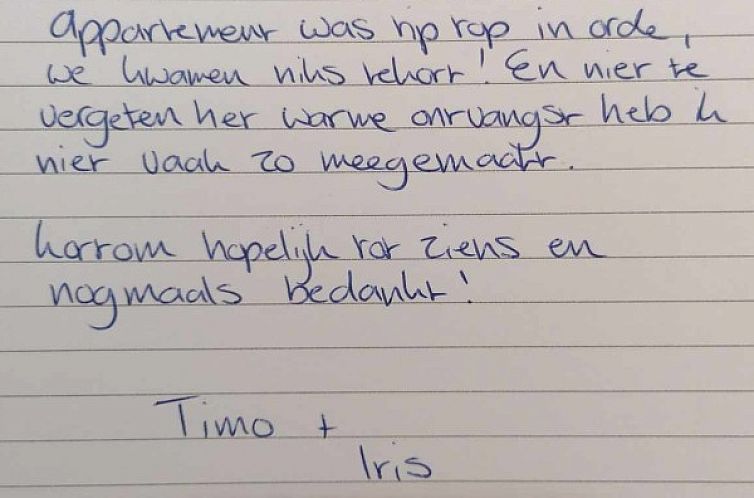 appartement was tip top in orde,
we kwamen niks tekort! En niet te
vergeten het warme ontvangst heb ik
niet vaak zo meegemaakt.
kortom hopelijk tot ziens en
nogmaals bedankt!
Timo +
Iris